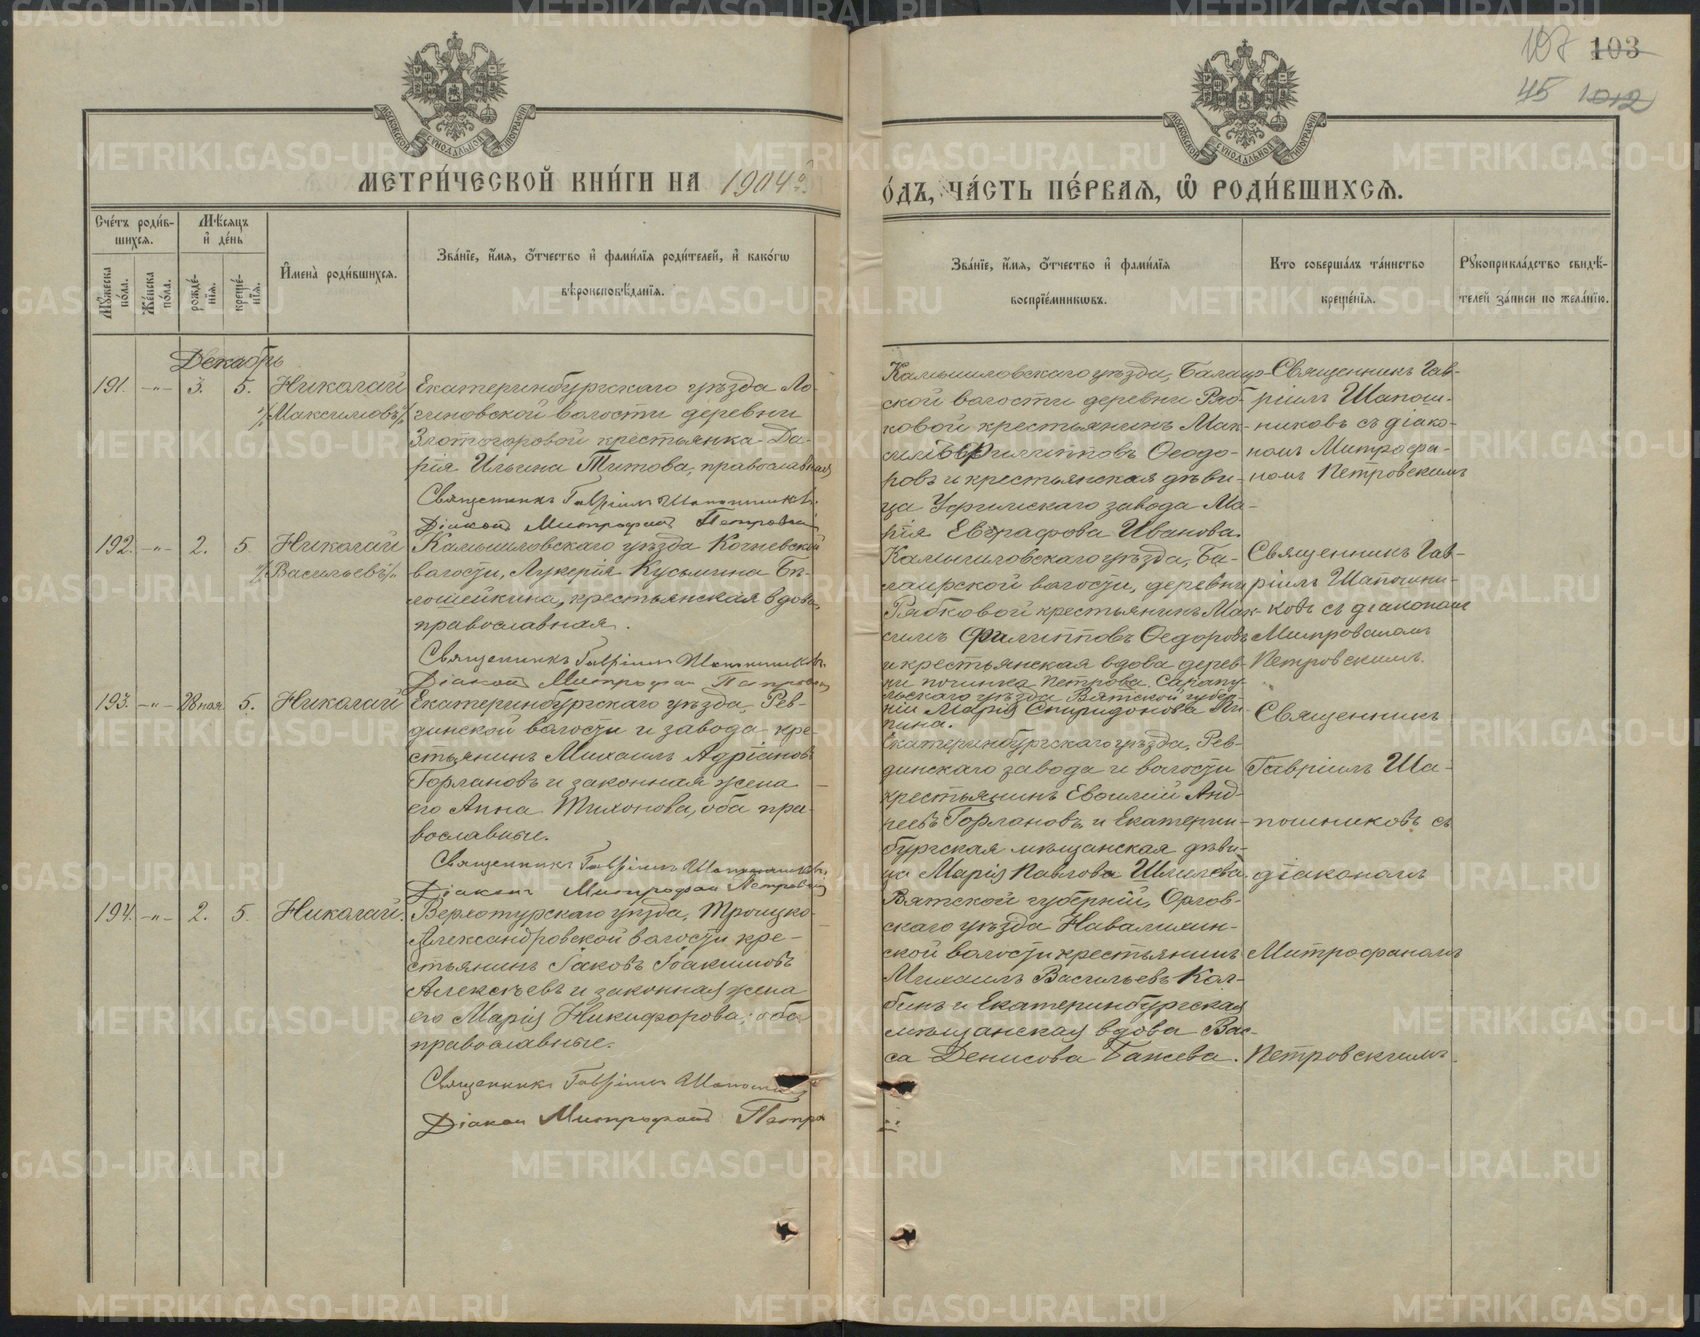 107 103
45 1012
МОСКОВСКОЙ СУНОДАЛЬНОЙ ТИПОГРАФІИ
МОСКОВСКОЙ СУНОДАЛЬНОЙ ТИПОГРАФІИ
МЕТРИ́ЧЕСКОЙ КНИ́ГИ НА 1904 г.
О́ДЪ, ЧА́СТЬ ПЕ́РВАѦ, Ѡ҆ РОДИ́ВШИХСѦ.
Сче́тъ роди́в-
шихсѧ.
Мꙋ́жеска по́ла.
Же́нска по́ла.
Мѣ́сѧцъ и҆ де́нь
рожде́-нїѧ.
креще́-нїѧ.
И҆мена̀ роди́вшихсѧ.
Зва́нїе, и҆́мѧ, ѻ҆́тчество и҆ фами́лїѧ роди́телей, и҆ како́гѡ
вѣроисповѣ́данїѧ.
Зва́нїе, и҆́мѧ, ѻ҆́тчество и҆ фами́лїѧ
воспрїе́мникѡвъ.
Кто соверша́лъ та́инство
креще́нїѧ.
Рꙋкоприкла́дство свидѣ́-
телей за́писи по жела́нїю.
Декабрь
191. -"- 3. 5. Николай
Максимовъ
Екатеринбургскаго уѣзда Ло-
гиновской волости деревни
Златогоровой крестьянка Да-
рія Ильина Титова, православная
Священникъ Гавріилъ Шапошниковъ
Діаконъ Митрофанъ Петровскій
Камышловскаго уѣзда, Балаир-
ской волости деревни Ряб-
ковой крестьянинъ Мак-
симъ Филипповъ Ѳеодо-
ровъ и крестьянская дѣви-
ца Уфимскаго завода Ма-
рія Евграфова Иванова.
Священникъ Гав-
ріилъ Шапош-
никовъ съ діако-
номъ Митрофа-
номъ Петровскимъ
192. -"- 2. 5. Николай
Васильевъ
Камышловскаго уѣзда Кочневской
волости, Лукерія Кузьмина Бѣ-
лошейкина, крестьянская вдова,
православная.
Священникъ Гавріилъ Шапошниковъ.
Діаконъ Митрофанъ Петровскій
Камышловскаго уѣзда, Ба-
лаирской волости, деревни
Рябковой крестьянинъ Мак-
симъ Филипповъ Ѳедоровъ
и крестьянская вдова дерев-
ни починка Петрова Сарапу-
льскаго уѣзда Вятской губер-
ніи Марія Спиридонова
Священникъ Гав-
ріилъ Шапошни-
ковъ съ діакономъ
Митрованомъ
Петровскимъ.
193. -"- 28 ноя. 5. Николай
Екатеринбургскаго уѣзда, Рев-
динской волости и завода кре-
стьянинъ Михаилъ Адріановъ
Горлановъ и законная жена
его Анна Тихонова, оба пра-
вославные.
Священникъ Гавріилъ Шапошниковъ.
Діаконъ Митрофанъ Петровскій
Екатеринбургскаго уѣзда, Рев-
динскаго завода и волости
крестьянинъ Евѳимій Анд-
реевъ Горлановъ и Екатерин-
бургская мѣщанская дѣви-
ца Марія Павлова
Священникъ
Гавріилъ Ша-
пошниковъ съ
діакономъ
194. -"- 2. 5. Николай.
Верхотурскаго уѣзда, Троицко-
Александровской волости кре-
стьянинъ Іаковъ Іоакимовъ
Алексѣевъ и законная жена
его Марія Никифорова; оба
православные.
Священникъ Гавріилъ
Діаконъ Митрофанъ Петро
Вятской губерніи, Орлов-
скаго уѣзда
ской волости крестьянинъ
Михаилъ Васильевъ Кол-
бинъ и Екатеринбургская
мѣщанская вдова Вас-
са Денисова Бажева.
Митрофаномъ
Петровскимъ.
METRIKI.GASO-URAL.RU